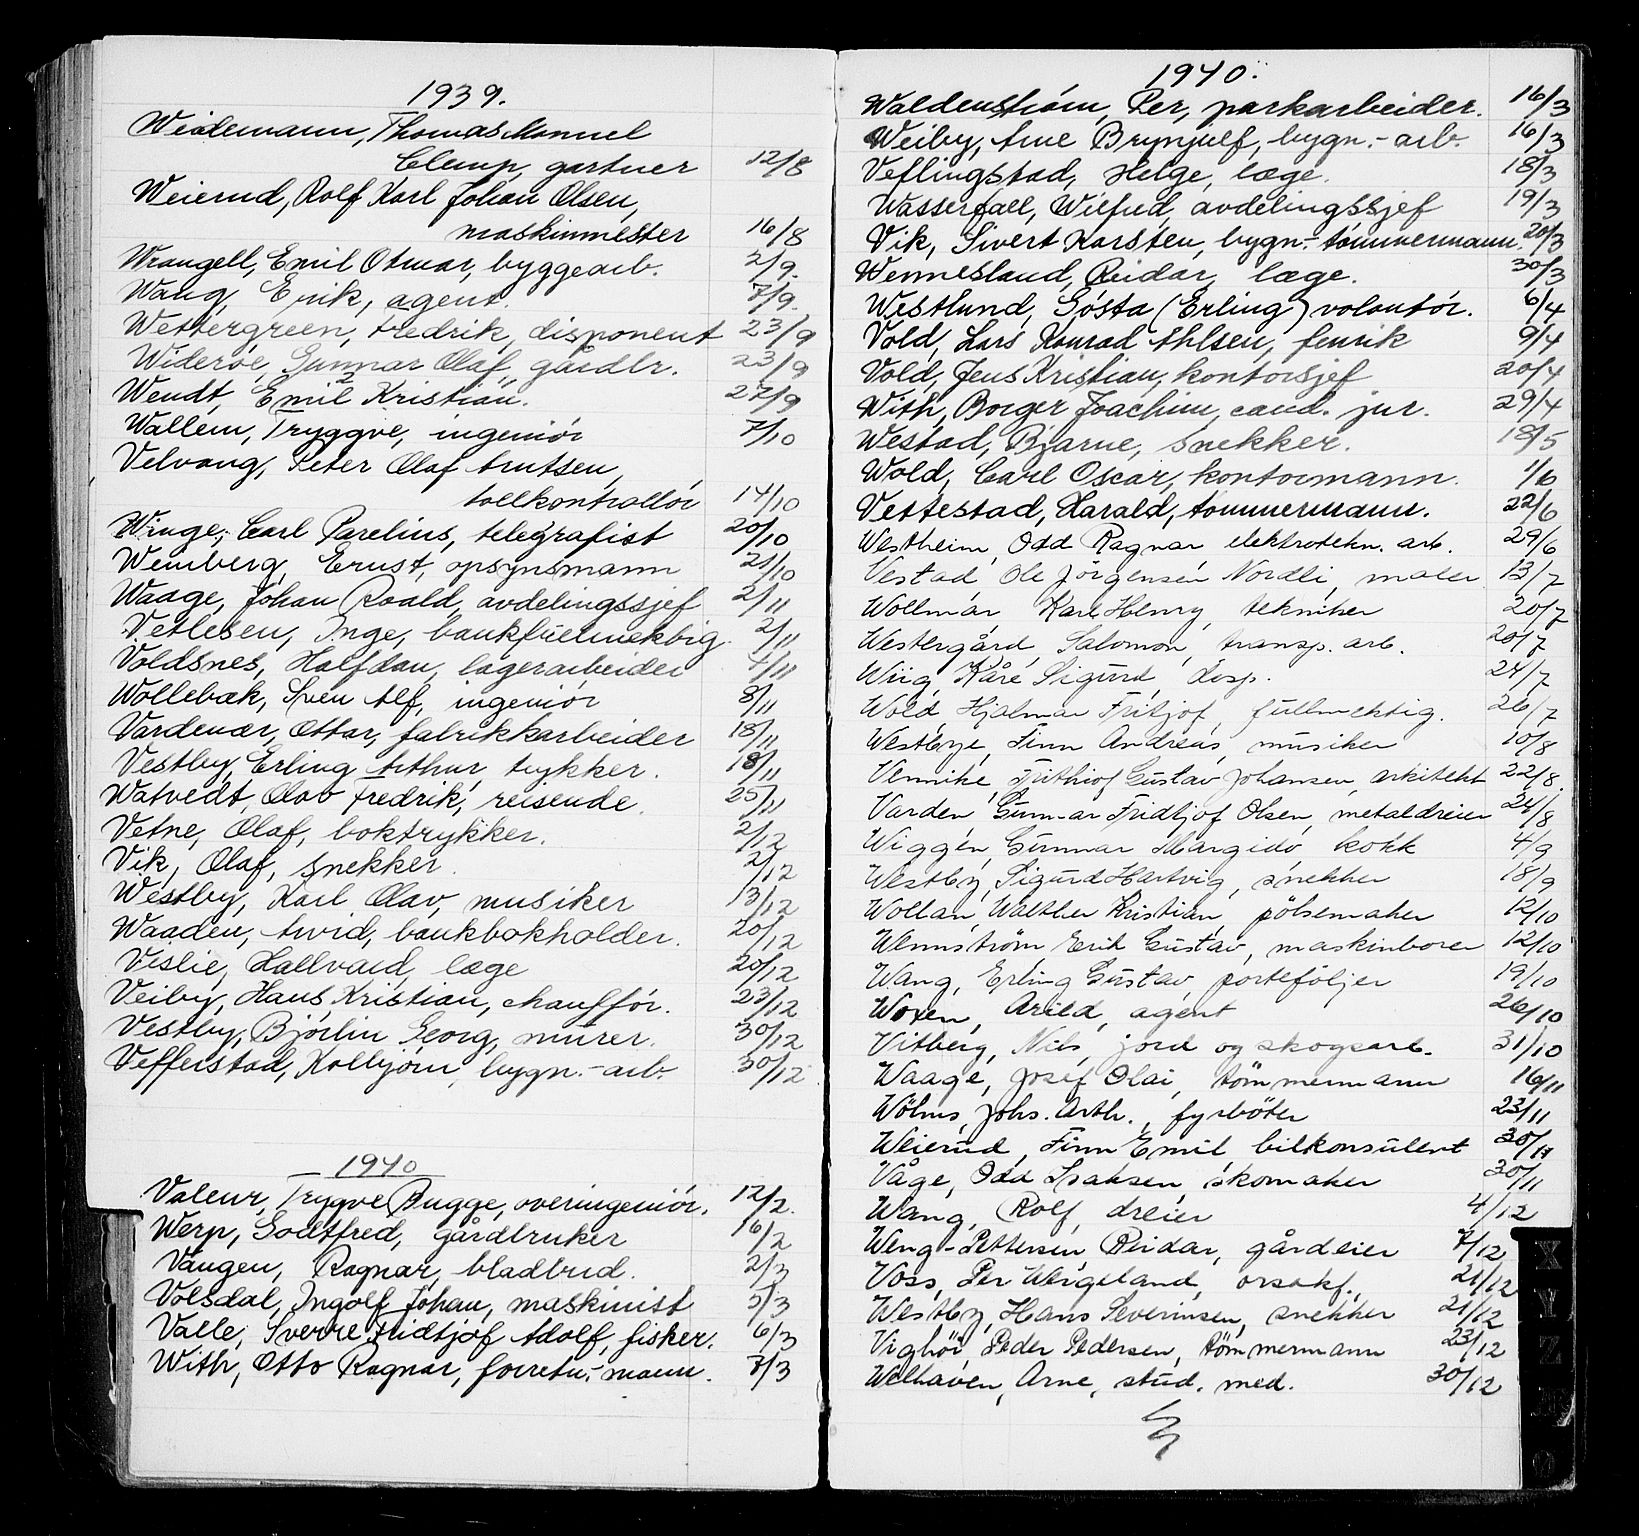 1939.
Weidemann, Thomas Manuel
Clemp, gartner 12/8
Weierud, Rolf Karl Johan Olsen,
maskinmester 16/8
Wrangell, Emil Otmar, byggearb. 2/9.
Wang, Erik, agent. 7/9.
Wettergreen, Fredrik, disponent 23/9
Widerøe, Gunnar Olaf, gårdbr. 23/9
Wendt, Emil Kristian. 27/9
Wallem, Tryggve, ingeniør 7/10
Velvang, Peter Olaf Arntsen,
tollkontrollør 14/10
Winge, Carl Parelius, telegrafist 20/10
Weinberg, Ernst, opsynsmann 21/10
Waage, Johan Roald, avdelingssjef 2/11
Vetlesen, Inge, bankfullmektig. 2/11
Voldsnes, Halfdan, lagerarbeider 4/11
Wollebæk, Sven Alf, ingeniør 8/11
Vardenær, Ottar, fabrikkarbeider 18/11
Vestby, Erling Arthur, trykker. 18/11
Watvedt, Olav Fredrik, reisende. 25/11
Vetne, Olaf, boktrykker. 2/12
Vik, Olaf, snekker. 2/12
Westby, Karl Olav, musiker 13/12
Waaden, Arvid, bankbokholder. 20/12
Veslie, Hallvard, læge 20/12
Veiby, Hans Kristian, chauffør. 23/12
Vestby, Bjørlin Georg, murer. 30/12
Vefferstad, Kolbjørn, bygn.-arb. 30/12
1940
Valeur, Trygve Bugge, overingeniør. 12/2.
Werp, Godtfred, gårdbruker 16/2
Vangen, Ragnar, bladbud. 2/3
Volsdal, Ingolf Johan, maskinist 5/3
Valle, Sverre Fridtjof Adolf, fisker. 6/3
With, Otto Ragnar, forretn.-mann. 7/3
1940.
Waldenstrøm, Per, parkarbeider. 16/3
Weiby, Arne Brynjulf, bygn.-arb. 16/3
Veflingstad, Helge, læge. 18/3
Wasserfall, Wilfred, avdelingssjef 19/3
Vik, Sivert Karsten, bygn.-tømmermann. 20/3
Wennesland, Reidar, læge. 30/3
Westlund, Gøsta (Erling) volontør. 6/4
Vold, Lars Konrad Ahlsen, fenrik 9/4
Vold, Jens Kristian, kontorsjef 20/4
With, Borger Joachim, cand. jur. 29/4
Westad, Bjarne, snekker. 18/5
Wold, Carl Oscar, kontormann. 1/6
Vettestad, Harald, tømmermann. 22/6
Westheim, Odd Ragnar elektrotekn. arb. 29/6
Vestad Ole Jörgensen Nordli, maler 13/7
Wollmar, Karl Henry, tekniker 20/7
Westergård, Salomon, transp. arb. 20/7
Wiig, Kåre Sigurd, disp. 24/7
Wold, Hjalmar Fritjof, fullmektig. 26/7
Westbye, Finn Andreas, musiker 10/8
Vennike, Frithiof Gustav Johansen, arkitekt 22/8.
Varden, Gunnar Fridtjof Olsen, metaldreier 24/8
Wiggen, Gunnar Margido kokk 4/9
Westby, Sigurd Hartvig, snekker 18/9
Wollan, Walther Kristian, pölsemaker 12/10
Wennström, Erik Gustav, maskinborer 12/10
Wang, Erling Gustav, porteföljer 19/10
Woxen, Arild, agent 26/10
Vitberg, Nils, jord og skogsarb. 31/10
Waage, Josef Olai, tömmermann 16/11
Wölms, Johs. Arth., fyrböter 23/11
Weierud, Finn Emil, bilkonsulent 30/11
Våge, Odd Isaksen, skomaker 30/11
Wang, Rolf, dreier 4/12
Weng-Pettersen Reidar, gårdeier 7/12
Voss, Per Wergeland, orsakf. 21/12
Westby, Hans Severinsen, snekker 21/12
Vighöi, Peder Pedersen, tömmermann 23/12
Welhaven, Arne, stud. med. 30/12
X
Y
Z
Ø